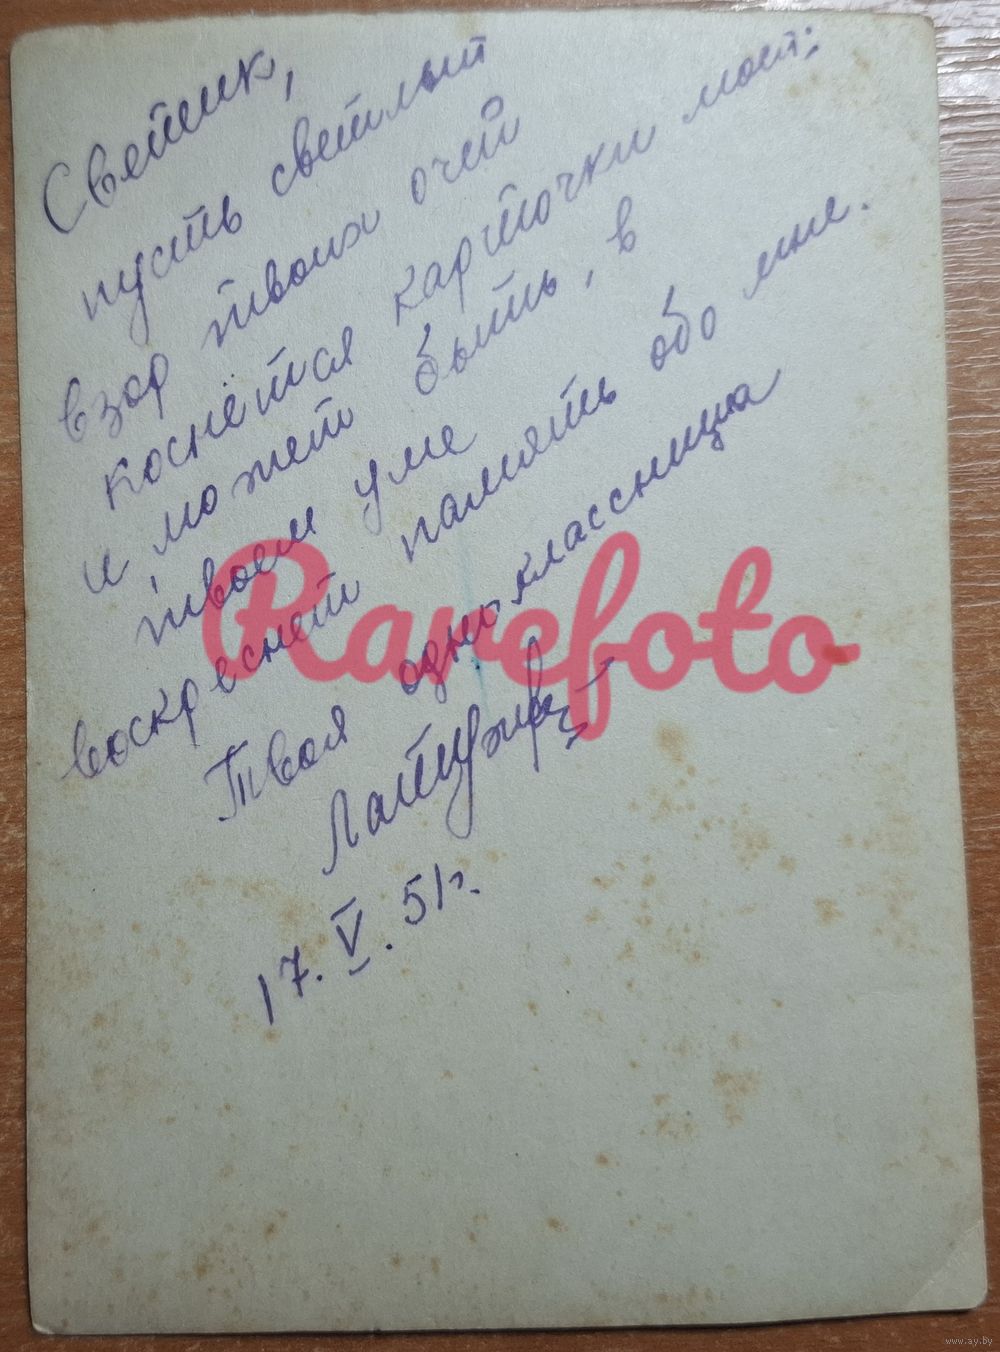 Светик,
пусть светлый
взор твоих очей
коснётся карточки моей:
и может быть, в
твоем уме
воскреснет память обо мне.
Твоя одноклассница
17.V.51г.
Rarefoto
www.ay.by